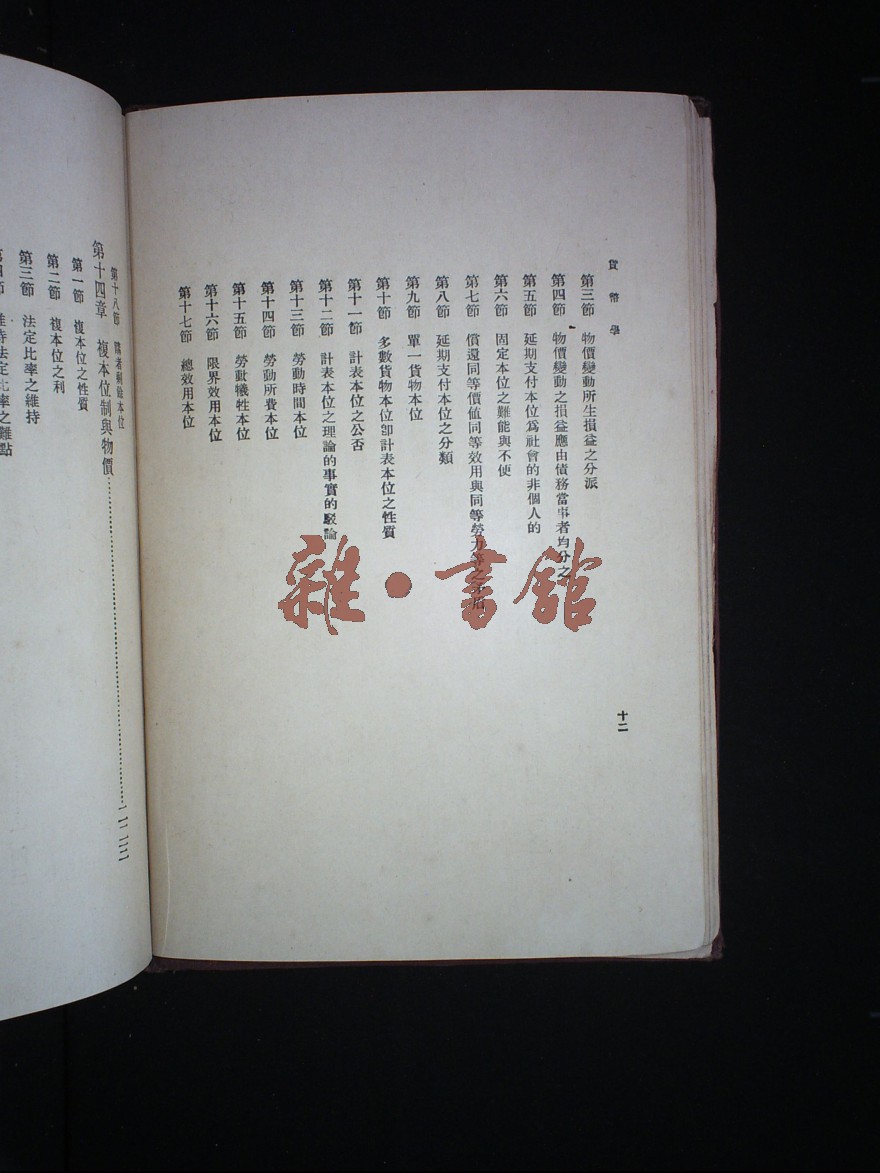 貨幣學
第三節 物價變動所生損益之分派
第四節 物價變動之損益應由債務當事者均分之
第五節 延期支付本位爲社會的非個人的
第六節 固定本位之難能與不便
第七節 償還同等價値同等效用與同等勞力等之
第八節 延期支付本位之分類
第九節 單一貨物本位
第十節 多數貨物本位卽計表本位之性質
第十一節 計表本位之公否
第十二節 計表本位之理論的事實的駁論
第十三節 勞動時間本位
第十四節 勞動所費本位
第十五節 勞動犧牲本位
第十六節 限界效用本位
第十七節 總效用本位
十二
第十八節 購者剩餘本位
第十四章 複本位制與物價
第一節 複本位之性質
第二節 複本位之利
第三節 法定比率之維持
第四節 維持法定比率之難點
雜·書館